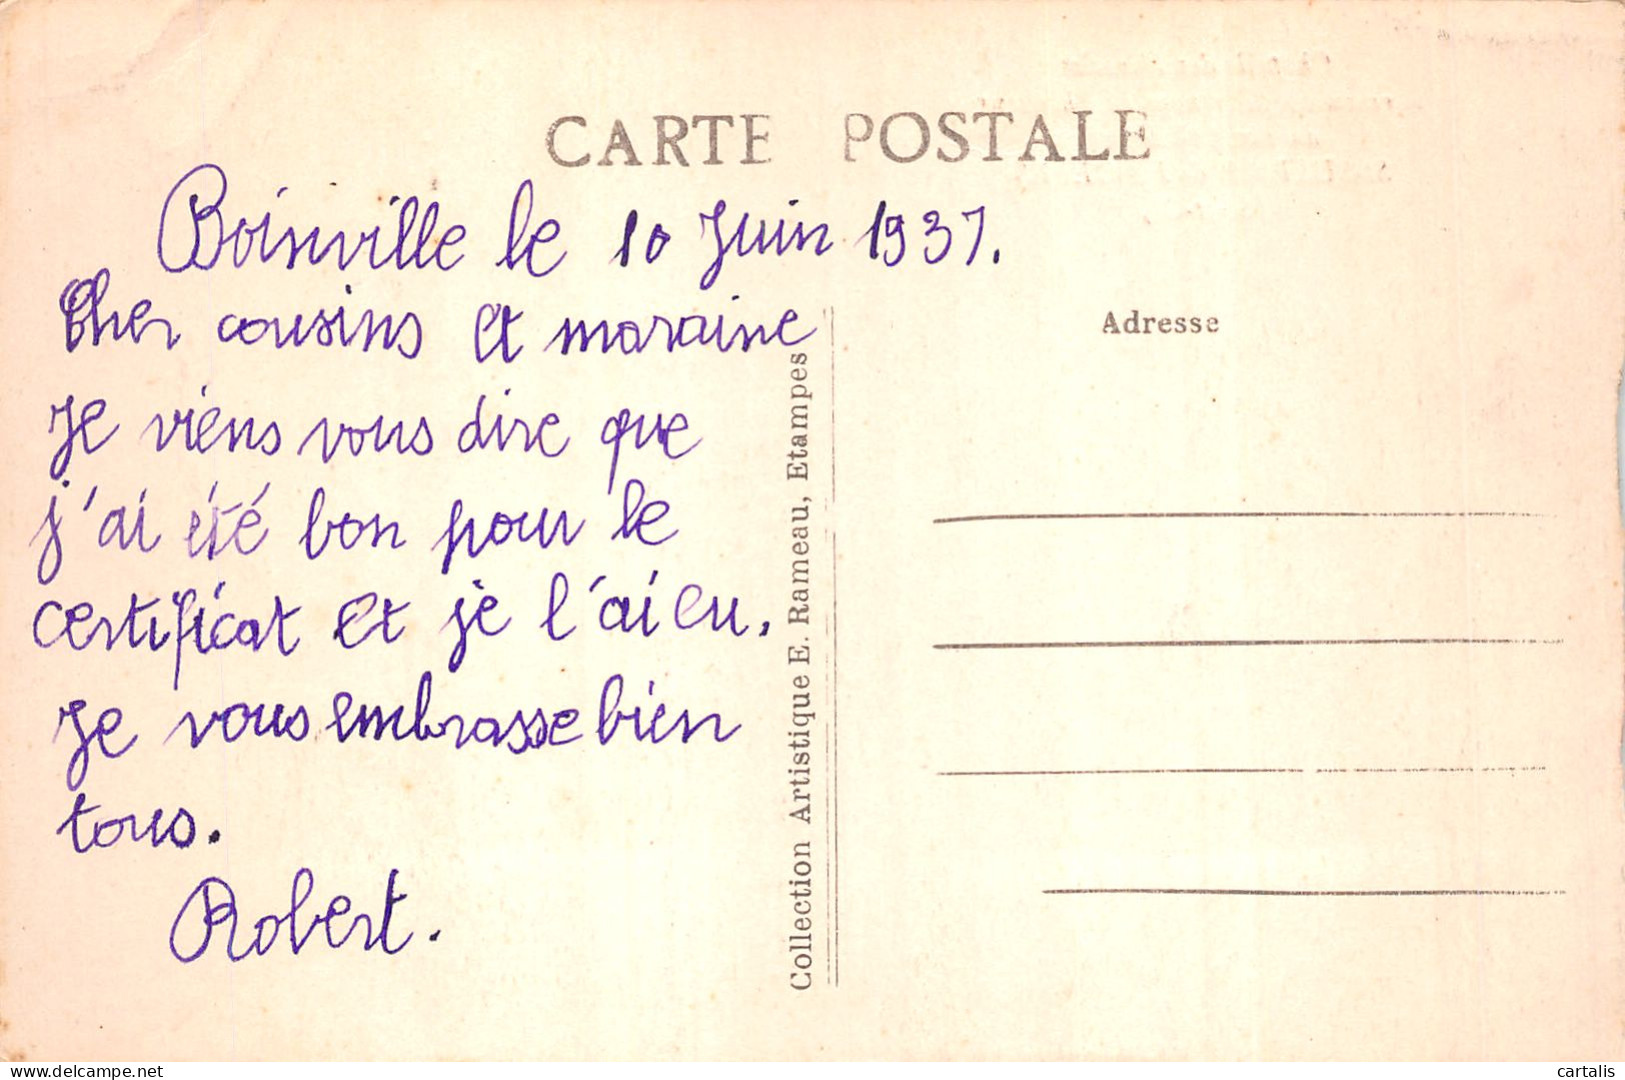 CARTE POSTALE
Boinville le 10 Juin 1937.
Cher cousins et marraine
Je viens vous dire que
j'ai été bon pour le
certificat et je l'ai eu.
Je vous embrasse bien
tous.
Robert.
Collection Artistique E. Rameau, Etampes
Adresse
delcampe.net
cartalis